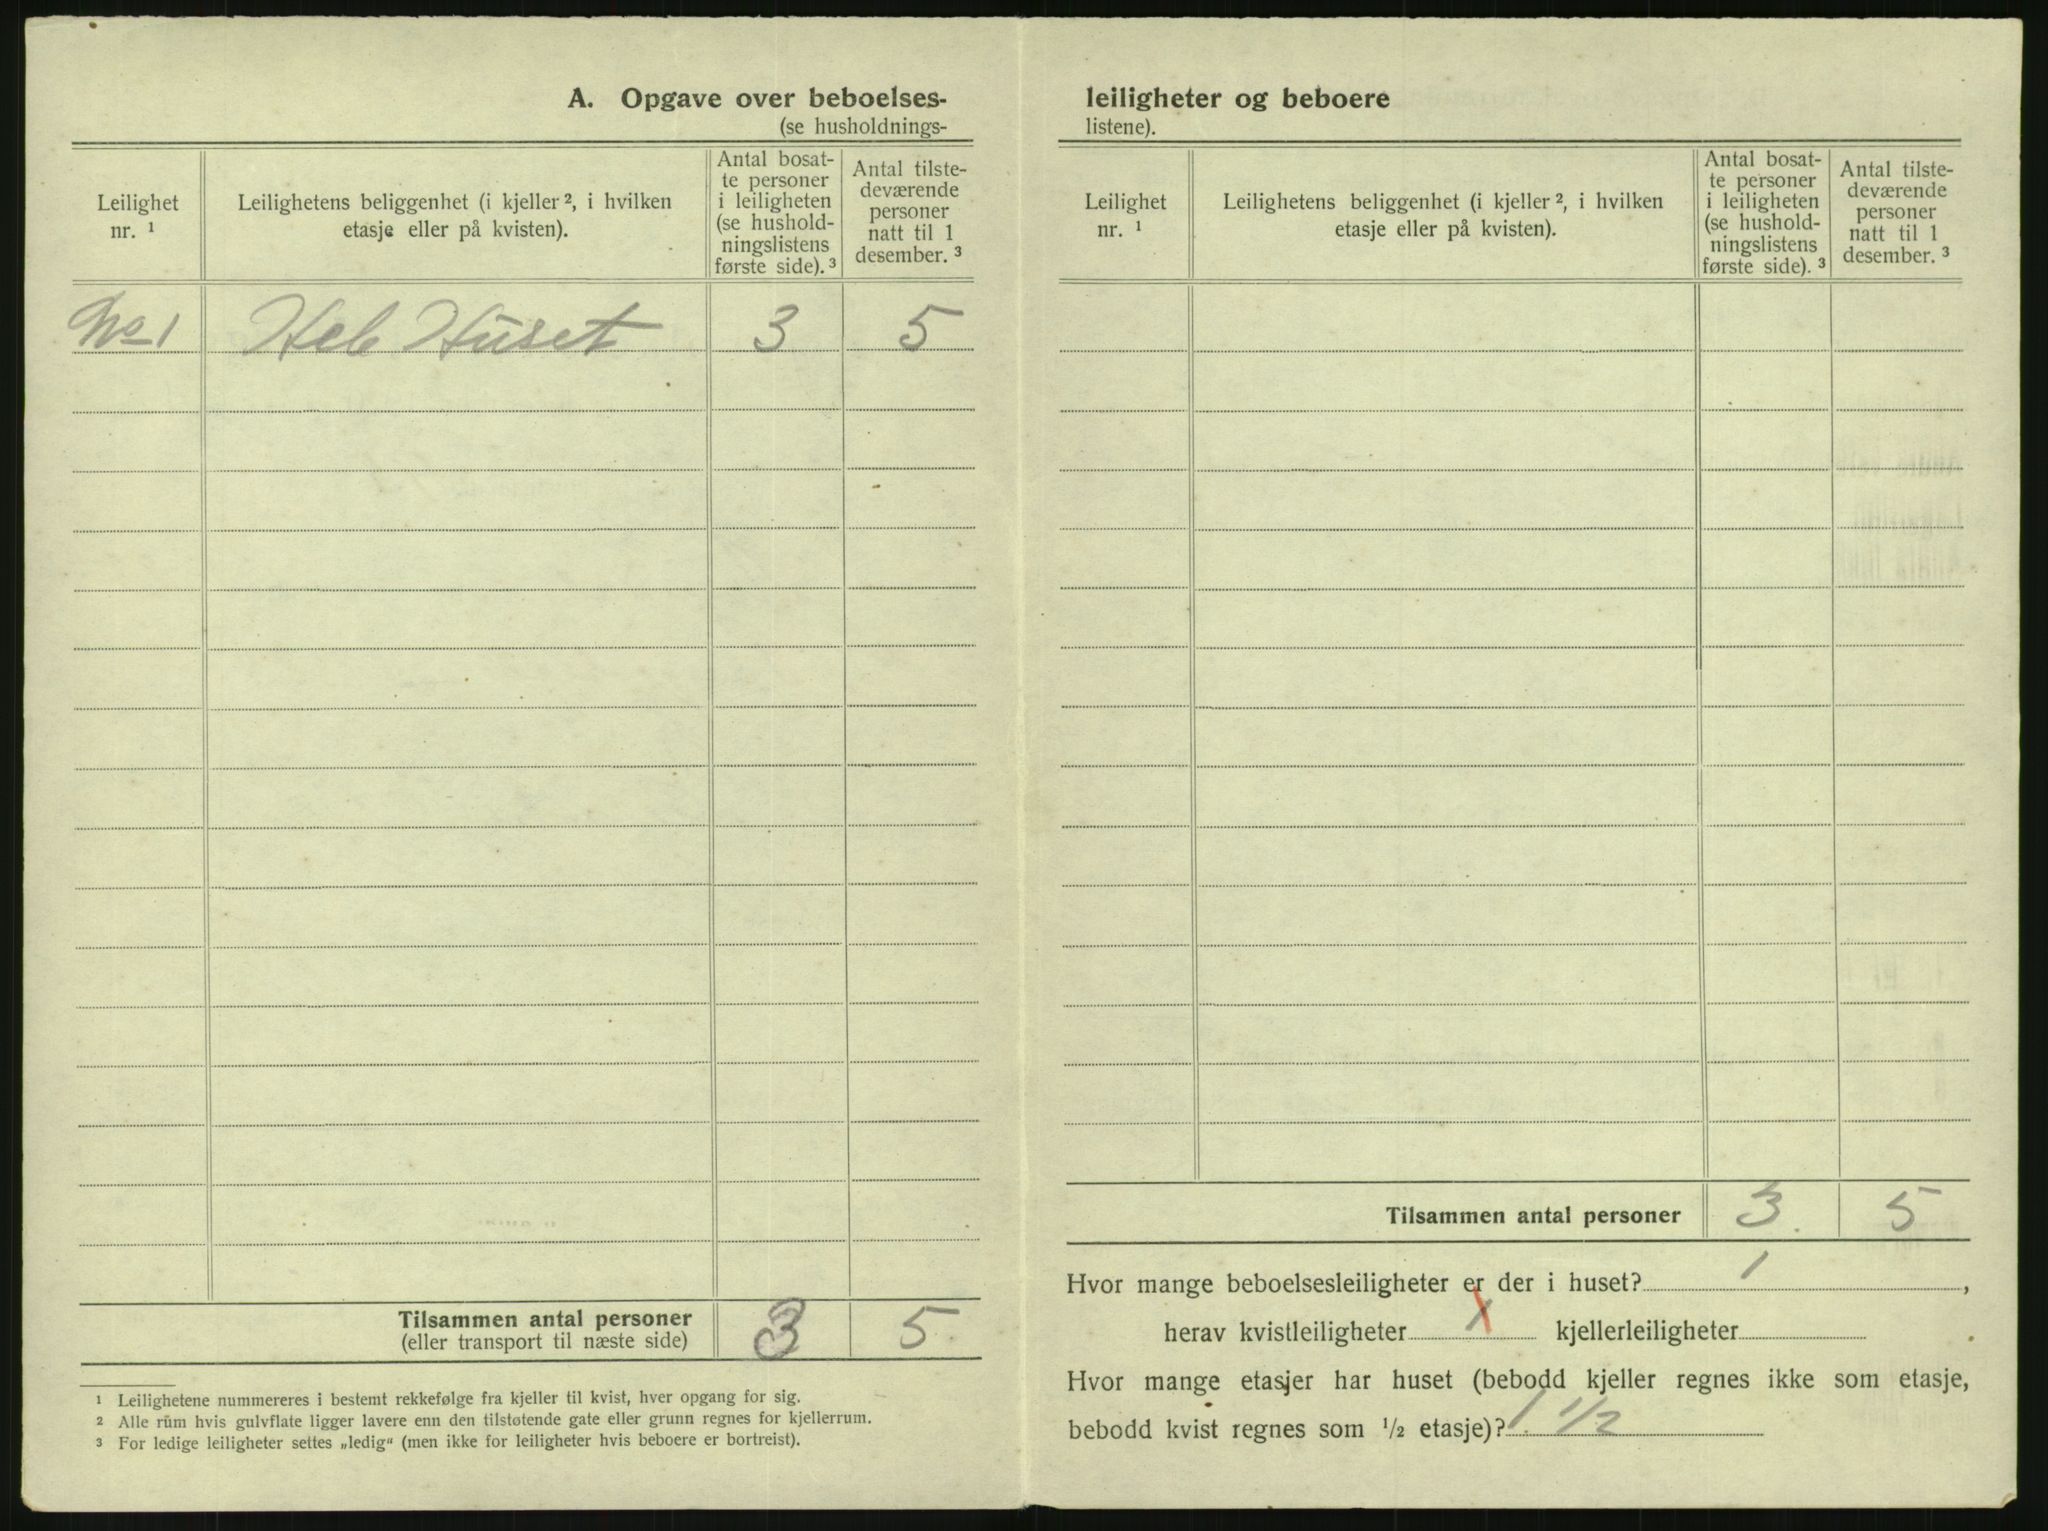 A. Opgave over beboelses-
(se husholdnings-
Leilighet nr. ¹
Leilighetens beliggenhet (i kjeller ², i hvilken etasje eller på kvisten).
Antal bosatte personer i leiligheten (se husholdningslistens første side). ³
Antal tilstedeværende personer natt til 1 desember. ³
No 1 Hele Huset 3 5
Tilsammen antal personer 3 5
(eller transport til næste side)
¹ Leilighetene nummereres i bestemt rekkefølge fra kjeller til kvist, hver opgang for sig.
² Alle rum hvis gulvflate ligger lavere enn den tilstøtende gate eller grunn regnes for kjellerrum.
³ For ledige leiligheter settes „ledig“ (men ikke for leiligheter hvis beboere er bortreist).
leiligheter og beboere
listene).
Leilighet nr. ¹
Leilighetens beliggenhet (i kjeller ², i hvilken etasje eller på kvisten).
Antal bosatte personer i leiligheten (se husholdningslistens første side). ³
Antal tilstedeværende personer natt til 1 desember. ³
Tilsammen antal personer 3. 5
Hvor mange beboelsesleiligheter er der i huset? 1,
herav kvistleiligheter 1 kjellerleiligheter
Hvor mange etasjer har huset (bebodd kjeller regnes ikke som etasje,
bebodd kvist regnes som ½ etasje)? 1. 1/2